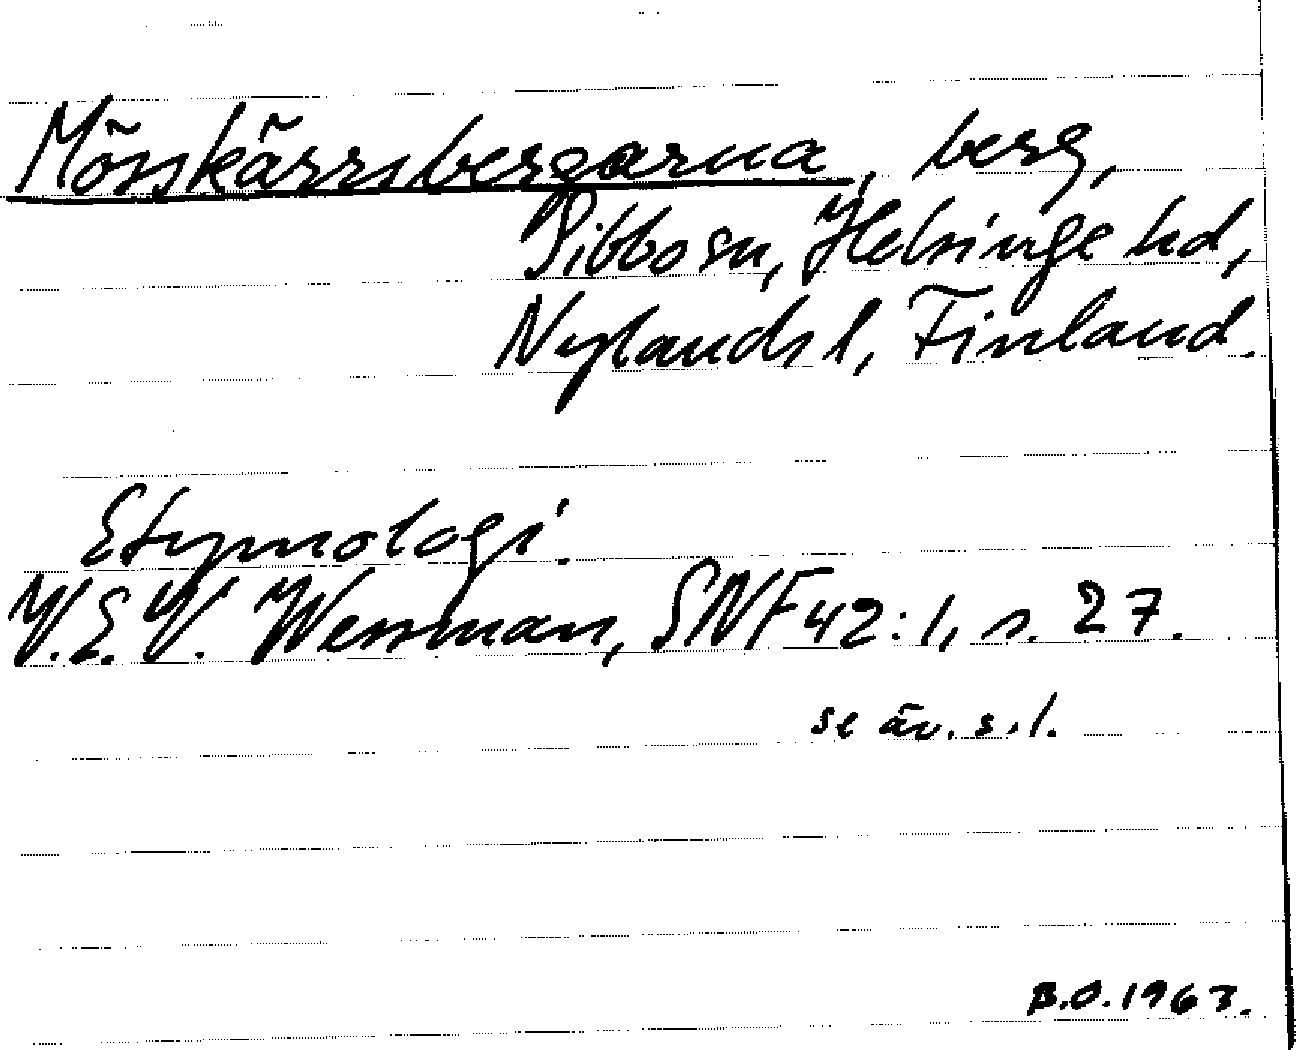 Mösskärrsbergarna, berg,
Sibbo sn, Helsinge hd,
Nylands l, Finland.
Etymologi.
V.E.V. Wessman, SNF 42:1, s. 27.
se äv. s. 1.
B.O. 1963.